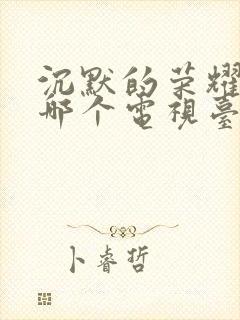 沉默的荣耀
哪个電視臺
卜睿哲